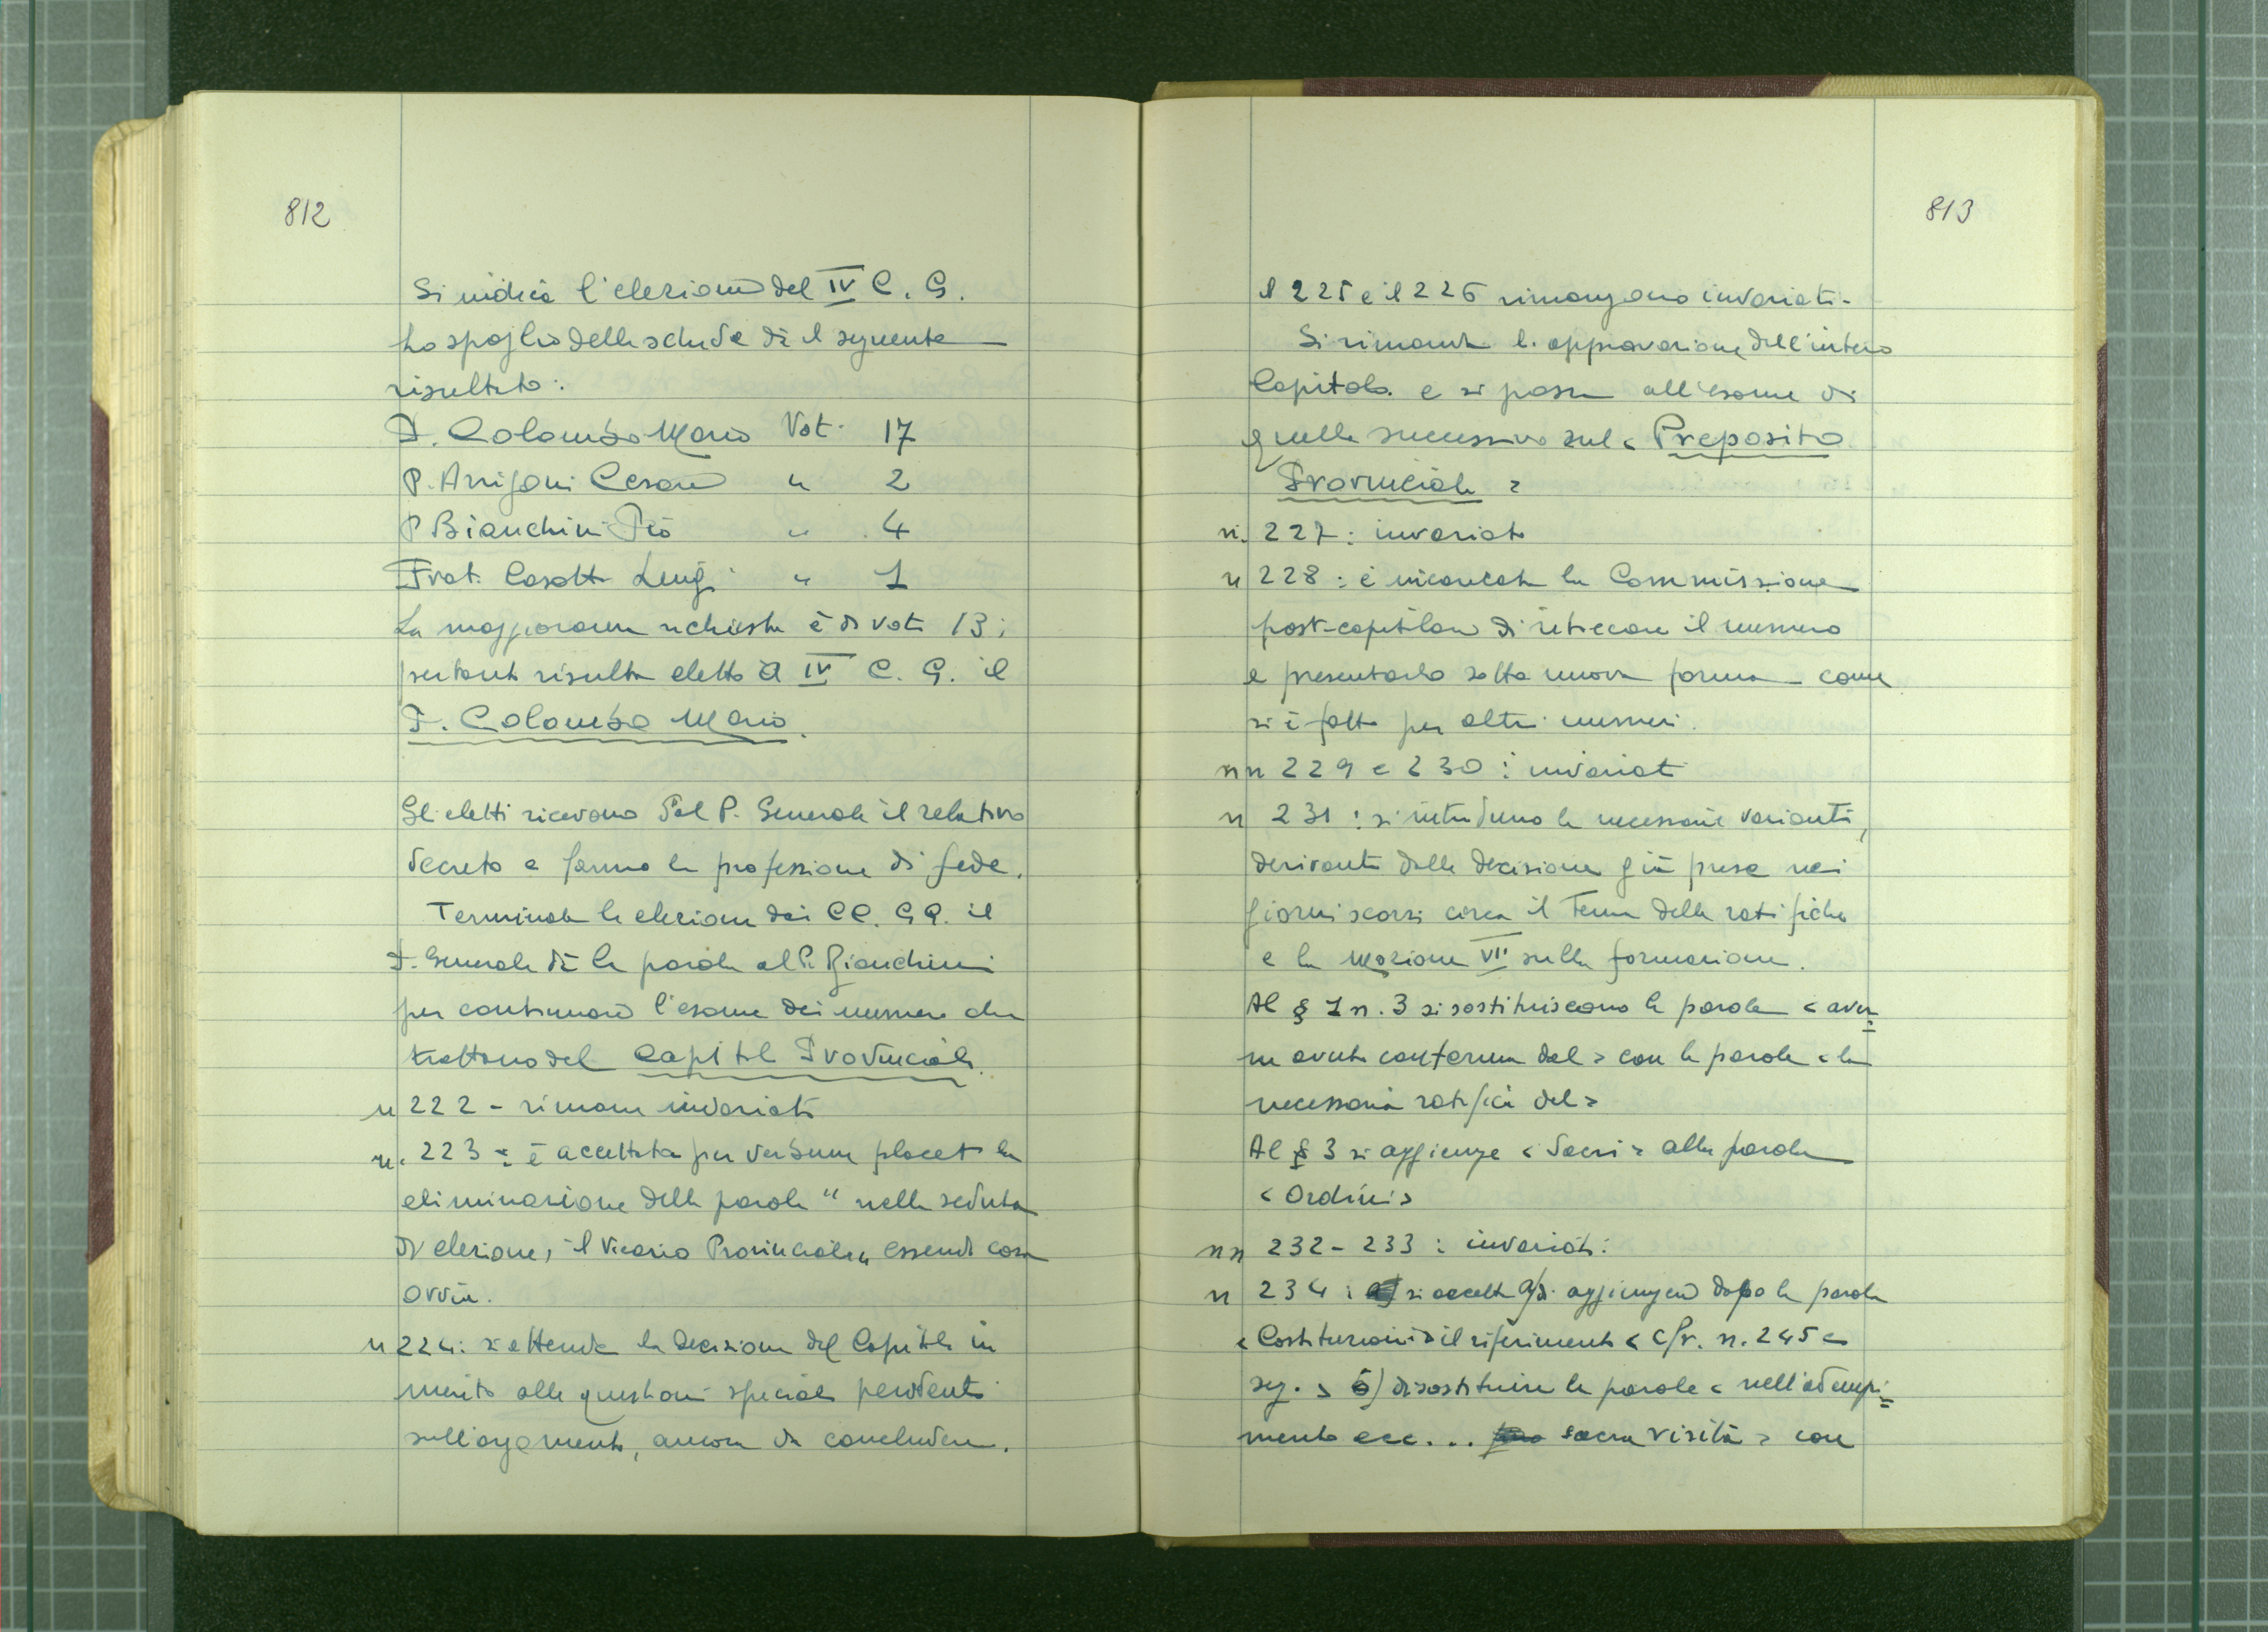 812
Si indice l'elezione del IV C. G.
Lo spoglio delle schede dà il seguente
risultato:
P. Colombo Mario Voti 17
P. Arrigoni Cesare " 2
P. Bianchini Pio " 4
Frat. Casotti Luigi " 1
La maggioranza richiesta è di voti 13;
pertanto risulta eletto a IV C. G. il
P. Colombo Mario.
Gli eletti ricevono dal P. Generale il relativo
decreto e fanno la professione di fede.
Terminate le elezioni dei CC. GG. il
P. Generale dà la parola al P. Bianchini
per continuare l'esame dei numeri che
trattano del Capitolo Provinciale.
n 222 - rimane invariato
n. 223 : è accettata per verbum placet la
eliminazione delle parole " nella seduta
di elezione, il Vicario Provinciale" essendo cosa
ovvia.
n 224: si attende la decisione del Capitolo in
merito alle questioni speciali pendenti
sull'argomento, ancora da concludere.
813
Il 225 e il 226 rimangono invariati.
Si rimanda l'approvazione dell'intero
Capitolo e si passa all'esame di
quello successivo sul < Preposito
Provinciale >
n. 227: invariato
n 228: è incaricata la Commissione
post-capitolare di ritoccare il numero
e presentarlo sotto nuova forma - come
si è fatto per altri numeri.
nn 229 e 230: invariati
n 231: si introducono le necessarie varianti,
derivanti dalle decisione già prese nei
giorni scorsi circa il tema delle ratifiche
e la mozione VII sulla formazione.
Al § 1 n. 3 si sostituiscono le parole < aver=
ne avuta conferma dal > con le parole < la
necessaria ratifica del >
Al § 3 si aggiunge < Sacri > alla parola
< Ordini >
nn 232 - 233: invariati:
n 234: si accetta a) di aggiungere dopo la parola
< Costituzioni > il riferimento < cfr. n. 245 e
seg. > b) di sostituire le parole < nell'adempi=
mento ecc... sacra visita > con